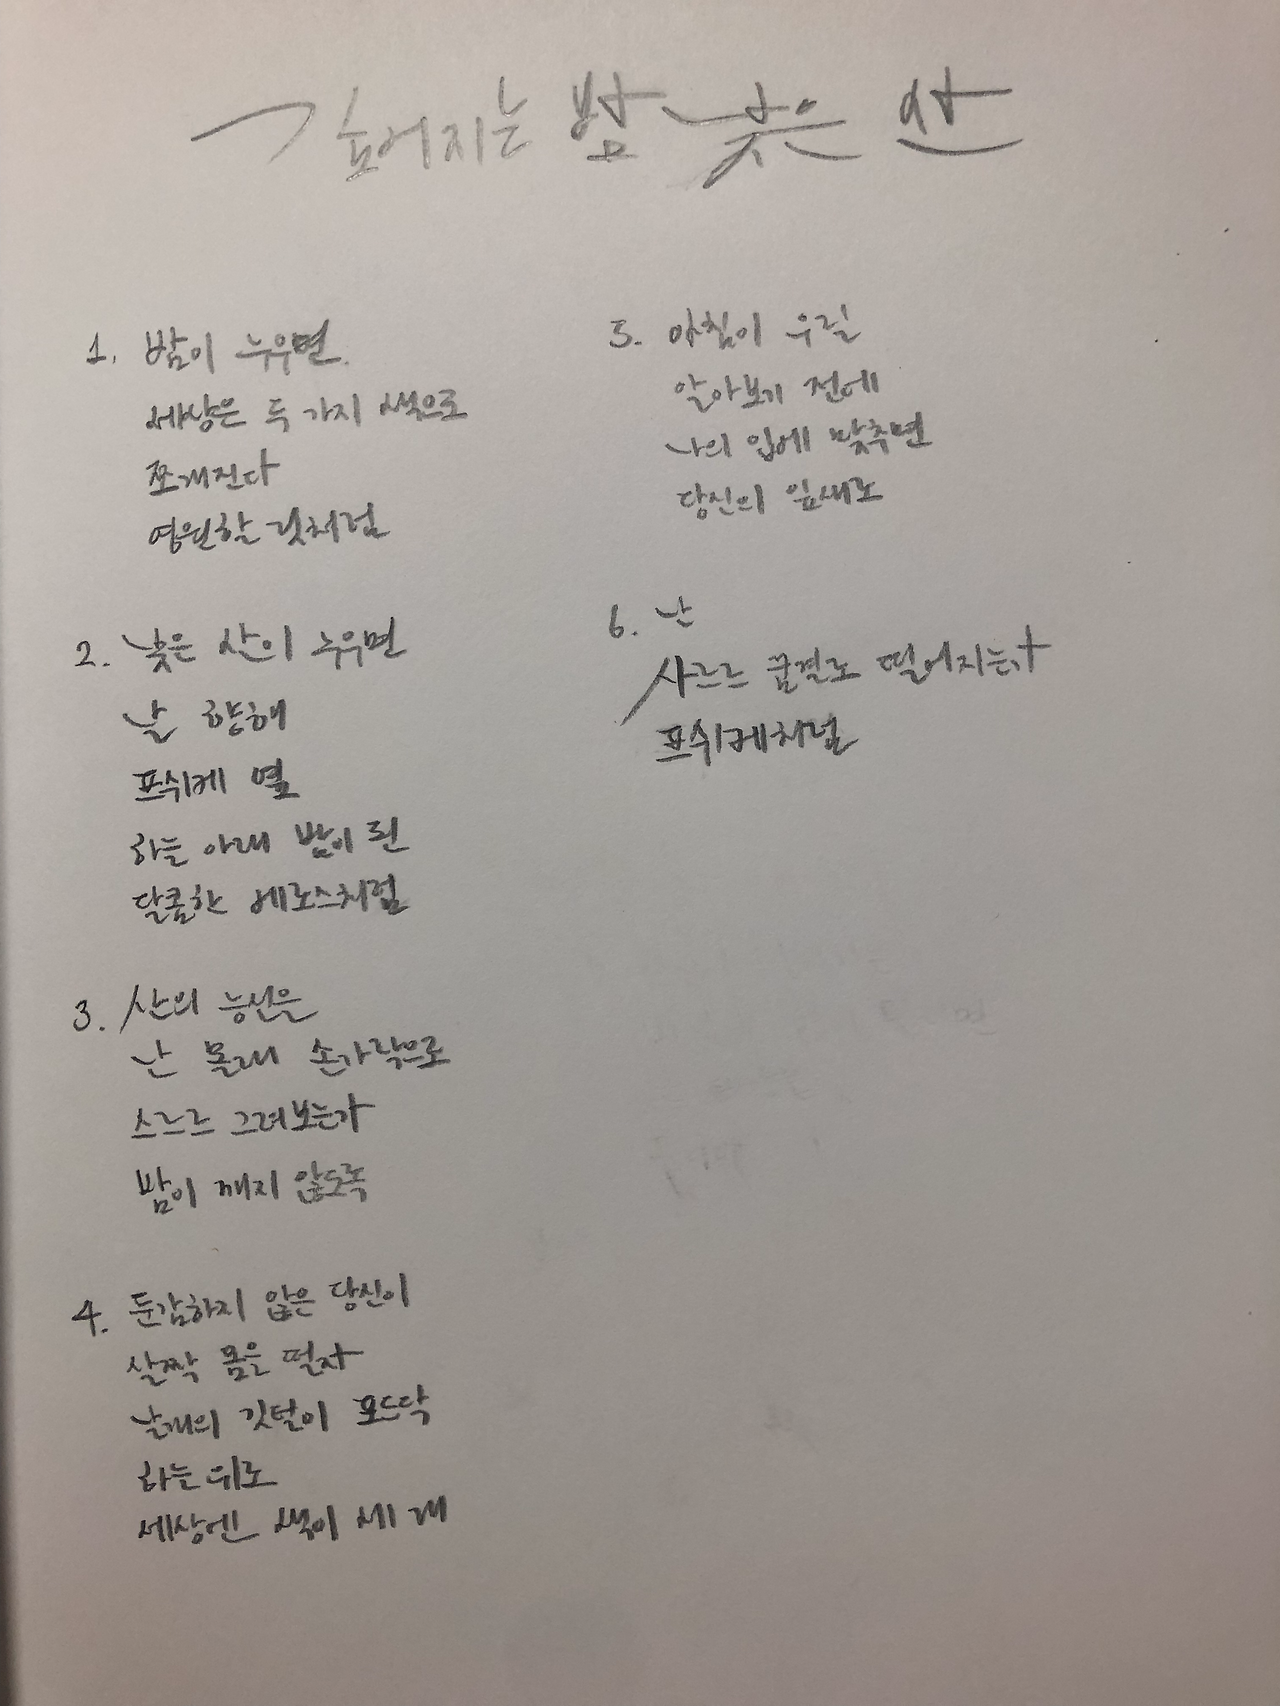 깊어지는 밤 낮은 산
1. 밤이 누우면
세상은 두 가지 색으로
쪼개진다
영원할 것처럼
2. 낮은 산이 누우면
날 향해
프쉬케 옆
하늘 아래 밤이 된
달콤한 에로스처럼
3. 산의 능선을
난 몰래 손가락으로
스르르 그려보는가
밤이 깨지 않도록
4. 둔감하지 않은 당신이
살짝 몸을 떨자
날개의 깃털이 포드닥
하늘 위로
세상엔 색이 세 개
5. 아침이 우릴
알아보기 전에
나의 입에 맞추면
당신의 잎새로
6. 난
사르르 꿈결로 떨어지는가
프쉬케처럼